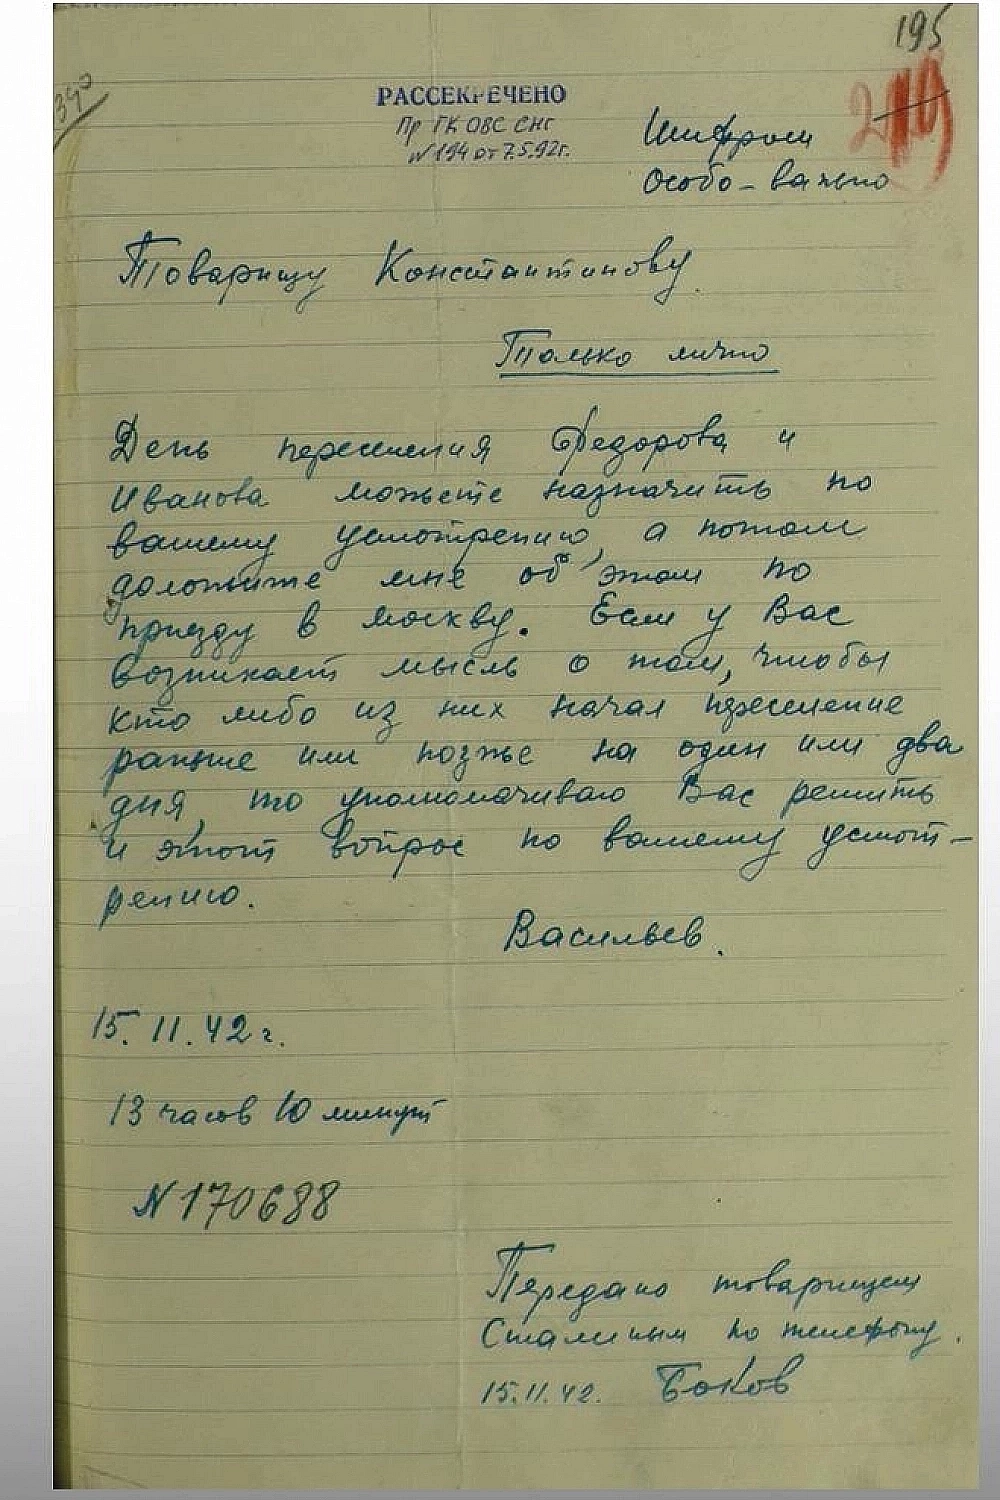 195
340
РАССЕКРЕЧЕНО
Пр ГК ОВС СНГ
N 194 от 7.5.92г.
Шифром
Особо-важно
Товарищу Константинову.
Только лично
День переселения Федорова и
Иванова можете назначить по
вашему усмотрению, а потом
доложите мне об этом по
приезду в Москву. Если у Вас
возникает мысль о том, чтобы
кто либо из них начал переселение
раньше или позже на один или два
дня, то уполномачиваю Вас решить
и этот вопрос по вашему усмот-
рению.
Васильев.
15.11.42 г.
13 часов 10 минут
N 170688
Передано товарищем
Сталиным по телефону.
15.11.42. Боков